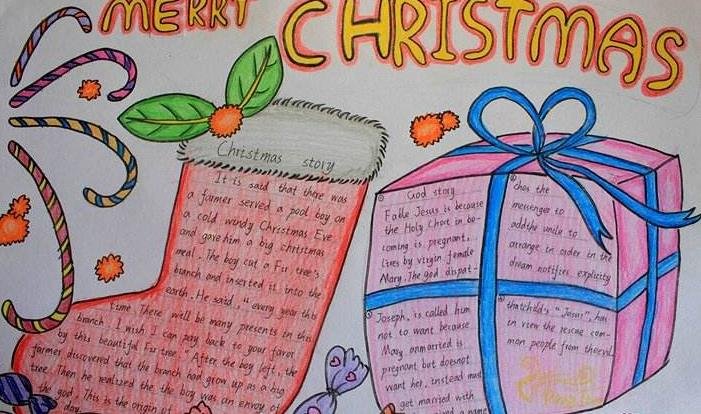 MERRY CHRISTMAS
Christmas story
It is said that there was
a farmer served a pool boy on
a cold windy Christmas Eve
and gave him a big christmas
meal. The boy cut a Fir tree's
branch and inserted it into the
earth. He said, "every year this
time There will be many presents in this
branch. I wish I can pay back to your favor
by this beautiful Fir tree." After the boy left, the
farmer discovered that the branch had grow up as a big
tree. Then he realized the the boy was an envoy of
the god. This is the origin of
day
① God story
Fable Jesus is because
the Holy Ghost in be-
coming is pregnant,
lives by virgin female
Mary. The god dispat-
② ches the
messenger to
addthe uncle to
arrange in order in the
dream notifies explicitly
③ Joseph, is called him
not to want because
Mary anmarried is
pregnant but doesnot
want her, instead must
get married with
and a name
④ thatchild's "Jesus", has
in view the rescue com-
mon people from theevil